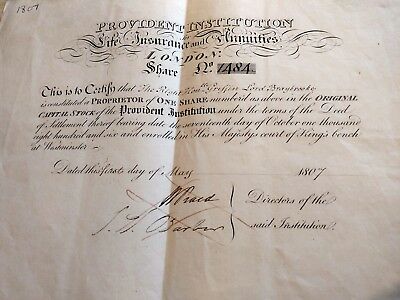 1807
PROVIDENT INSTITUTION
for
Life Insurance and Annuities
LONDON.
Share No. 1484.
This is to Certify that The Right Honble. Griffin Lord Braybrooke
is constituted a PROPRIETOR of ONE SHARE number'd as above in the ORIGINAL
CAPITAL STOCK of the Provident Institution under the terms of the Deed
of Settlement thereof bearing date the seventeenth day of October one thousand
eight hundred and six and enrolled in His Majestys court of King's bench
at Westminster
Dated this first day of May 1807
Praed
Directors of the
Barlow
said Institution.